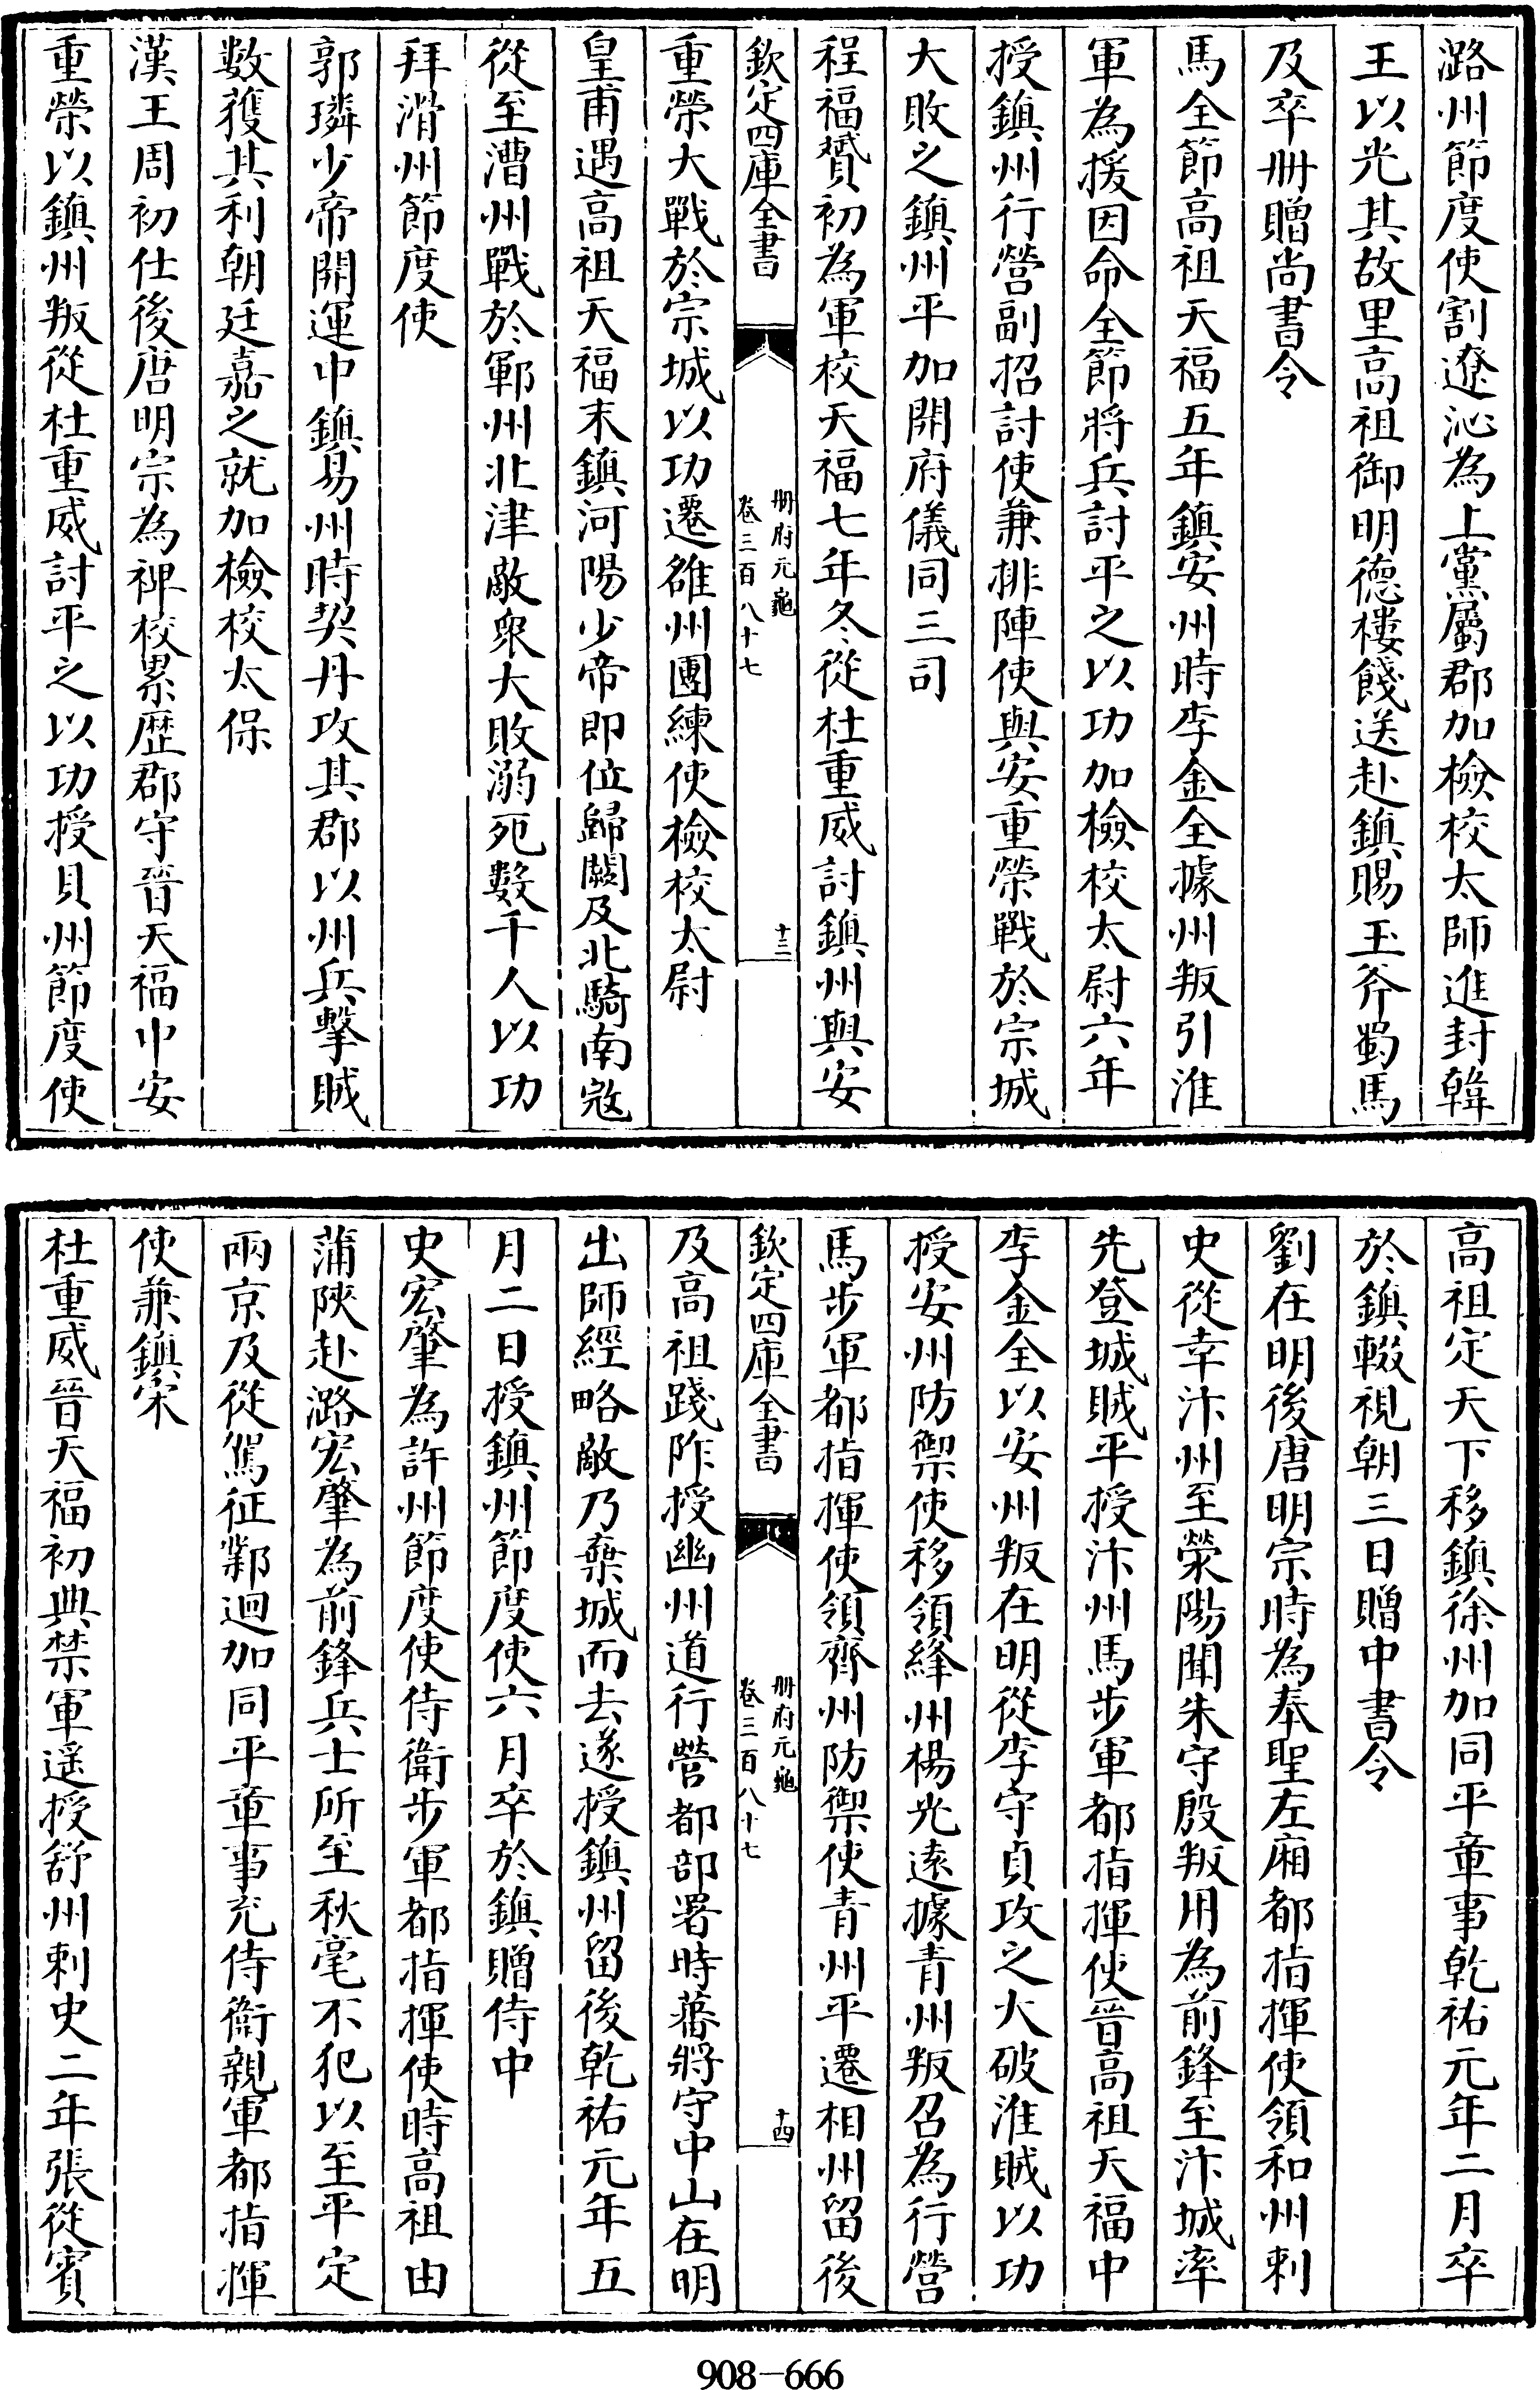 潞州節度使割遼沁為上黨屬郡加檢校太師進封韓
王以光其故里高祖御明德樓餞送赴鎮賜玉斧蜀馬
及卒冊贈尚書令
馬全節高祖天福五年鎮安州時李金全據州叛引淮
軍為援因命全節將兵討平之以功加檢校太尉六年
授鎮州行營副招討使兼排陣使與安重榮戰於宗城
大敗之鎮州平加開府儀同三司
程福贇初為軍校天福七年冬從杜重威討鎮州與安
欽定四庫全書
冊府元龜
卷三百八十七
十三
重榮大戰於宗城以功遷雒州團練使檢校太尉
皇甫遇高祖天福末鎮河陽少帝即位歸闕及北騎南寇
從至澶州戰於鄆州北津敵眾大敗溺死數千人以功
拜滑州節度使
郭璘少帝開運中鎮易州時契丹攻其郡以州兵擊賊
數獲其利朝廷嘉之就加檢校太保
漢王周初仕後唐明宗為裨校累歷郡守晉天福中安
重榮以鎮州叛從杜重威討平之以功授貝州節度使
高祖定天下移鎮徐州加同平章事乾祐元年二月卒
於鎮輟視朝三日贈中書令
劉在明後唐明宗時為奉聖左廂都指揮使領和州刺
史從幸汴州至滎陽聞朱守殷叛用為前鋒至汴城率
先登城賊平授汴州馬步軍都指揮使晉高祖天福中
李金全以安州叛在明從李守貞攻之大破淮賊以功
授安州防禦使移領絳州楊光遠據青州叛召為行營
馬步軍都指揮使領齊州防禦使青州平遷相州留後
欽定四庫全書
冊府元龜
卷三百八十七
十四
及高祖踐阼授幽州道行營都部署時蕃將守中山在明
出師經略敵乃棄城而去遂授鎮州留後乾祐元年五
月二日授鎮州節度使六月卒於鎮贈侍中
史宏肇為許州節度使侍衛步軍都指揮使時高祖由
蒲陝赴潞宏肇為前鋒兵士所至秋毫不犯以至平定
兩京及從駕征鄴迴加同平章事充侍衛親軍都指揮
使兼鎮宋
杜重威晉天福初典禁軍遥授舒州刺史二年張從賓
908-666